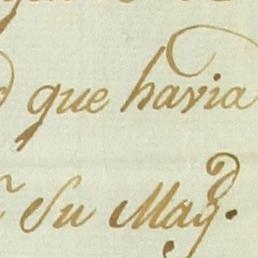 que havia
Su Mag.d